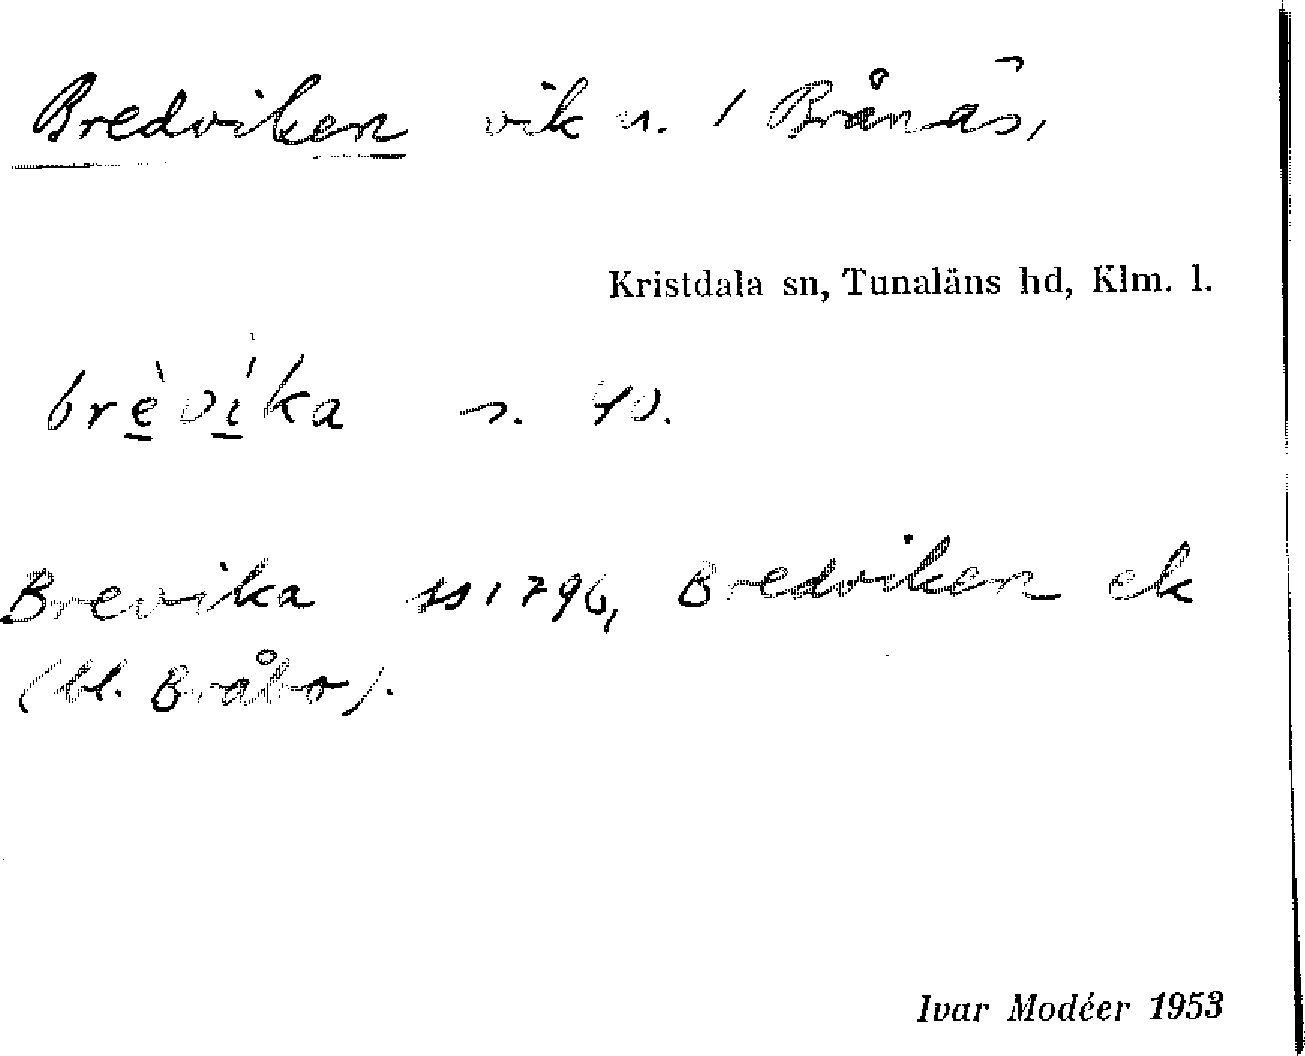 Bredviken vik n. / Brånäs,
Kristdala sn, Tunaläns hd, Klm. l.
brèvíka n. 40.
Brevika ss 1796, Bredviken ek
(bl. Bråbo).
Ivar Modéer 1953